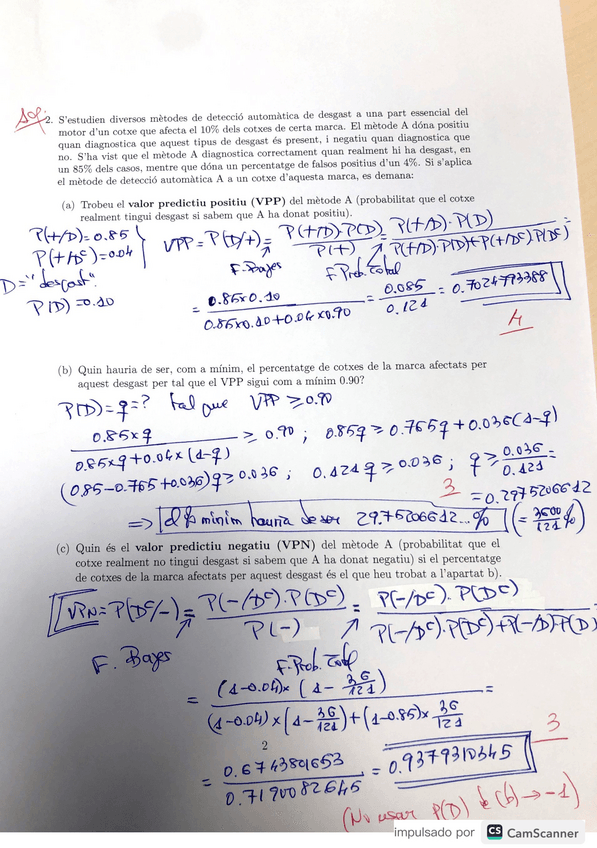 Sol:
2. S'estudien diversos mètodes de detecció automàtica de desgast a una part essencial del
motor d'un cotxe que afecta el 10% dels cotxes de certa marca. El mètode A dóna positiu
quan diagnostica que aquest tipus de desgast és present, i negatiu quan diagnostica que
no. S'ha vist que el mètode A diagnostica correctament quan realment hi ha desgast, en
un 85% dels casos, mentre que dóna un percentatge de falsos positius d'un 4%. Si s'aplica
el mètode de detecció automàtica A a un cotxe d'aquesta marca, es demana:
(a) Trobeu el valor predictiu positiu (VPP) del mètode A (probabilitat que el cotxe
realment tingui desgast si sabem que A ha donat positiu).
P(+/D)=0.85
P(+/Dᶜ)=0.04
VPP = P(D/+) = P(+/D)·P(D) / P(+) = P(+/D)·P(D) / P(+/D)·P(D)+P(+/Dᶜ)·P(Dᶜ) =
F. Bayes
F. Prob. Total
D="desgast".
P(D)=0.10
= 0.85x0.10 / 0.85x0.10+0.04x0.90 = 0.085 / 0.121 = 0.7024793388
4
(b) Quin hauria de ser, com a mínim, el percentatge de cotxes de la marca afectats per
aquest desgast per tal que el VPP sigui com a mínim 0.90?
P(D)=q=? tal que VPP ≥ 0.90
0.85xq / 0.85xq+0.04x(1-q) ≥ 0.90 ; 0.85q ≥ 0.765q + 0.036(1-q)
(0.85-0.765+0.036)q ≥ 0.036 ; 0.121q ≥ 0.036 ; q ≥ 0.036 / 0.121 =
3
= 0.2975206612
=> el % mínim hauria de ser 29.75206612...% (= 3600/121 %)
(c) Quin és el valor predictiu negatiu (VPN) del mètode A (probabilitat que el
cotxe realment no tingui desgast si sabem que A ha donat negatiu) si el percentatge
de cotxes de la marca afectats per aquest desgast és el que heu trobat a l'apartat b).
VPN = P(Dᶜ/-) = P(-/Dᶜ)·P(Dᶜ) / P(-) = P(-/Dᶜ)·P(Dᶜ) / P(-/Dᶜ)·P(Dᶜ)+P(-/D)·P(D)
F. Bayes
F. Prob. Total
= (1-0.04)x(1-36/121) / (1-0.04)x(1-36/121)+(1-0.85)x36/121 =
2
3
= 0.6743801653 / 0.7190082645 = 0.9379310345
(No usar P(D) de (b) → -1)
impulsado por CS CamScanner